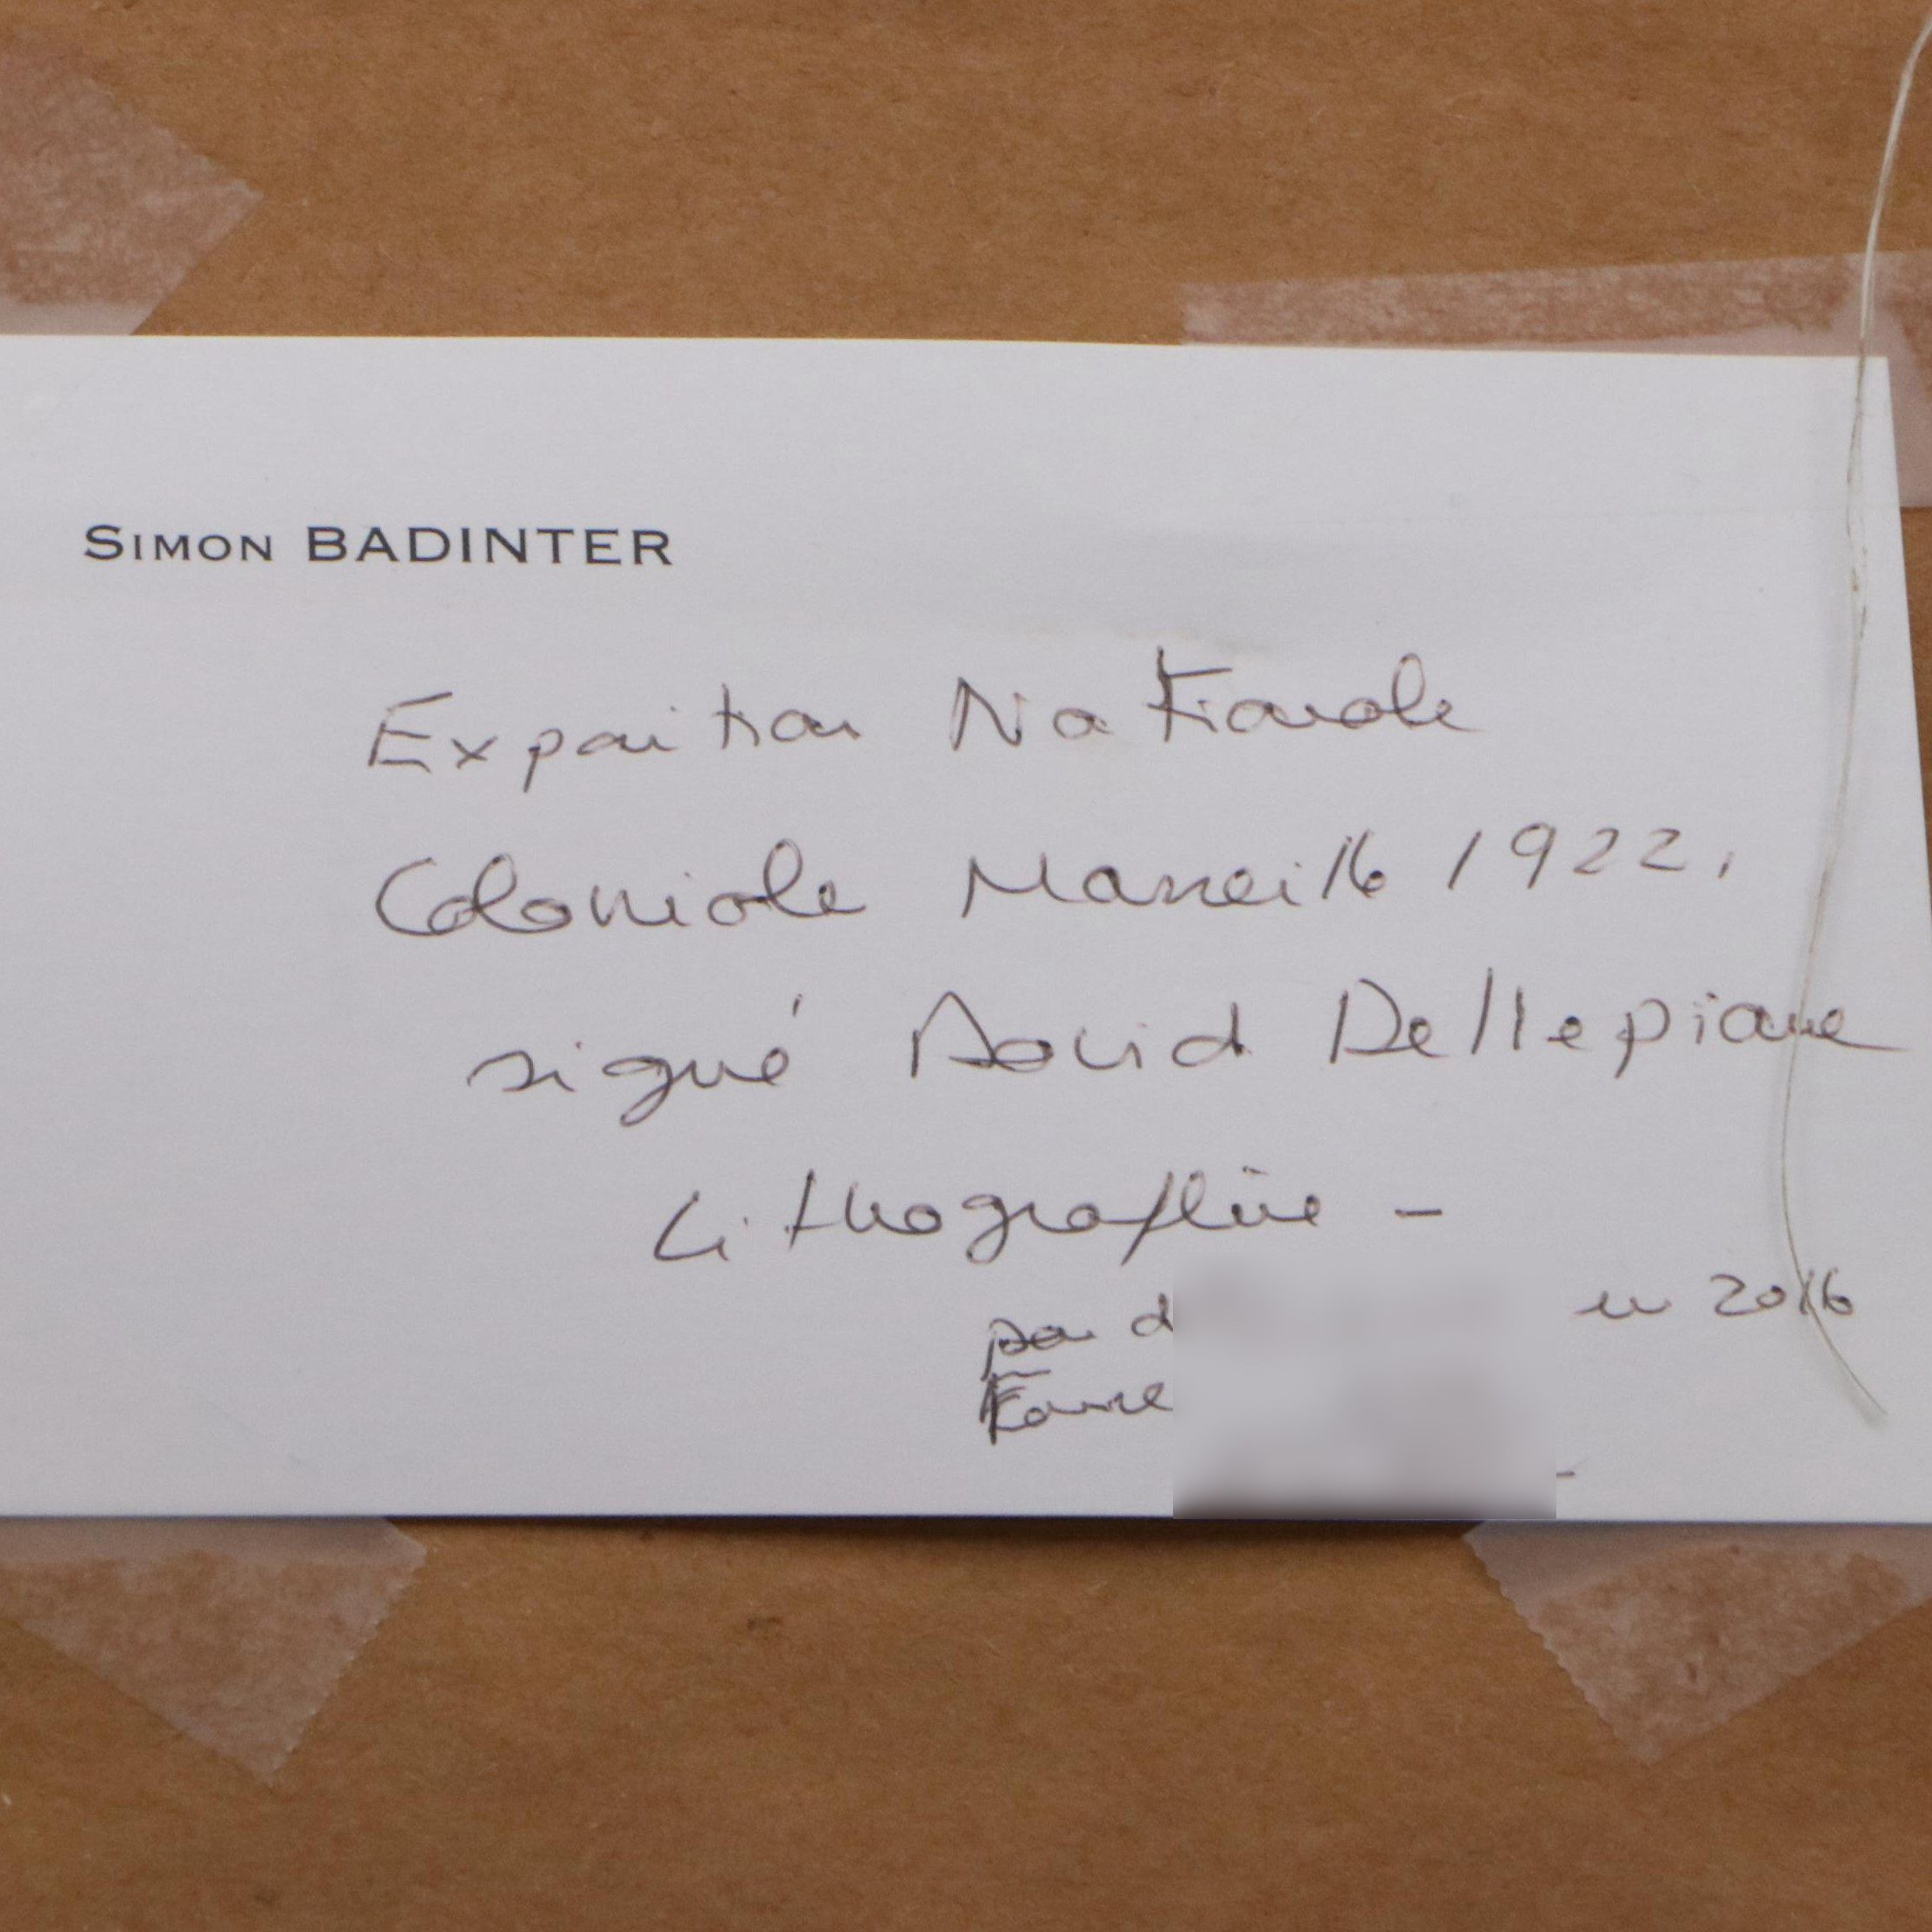 Simon BADINTER
Exposition Nationale
Coloniale Marseille 1922,
signé David Dellepiane
Lithographie -
par en 2016